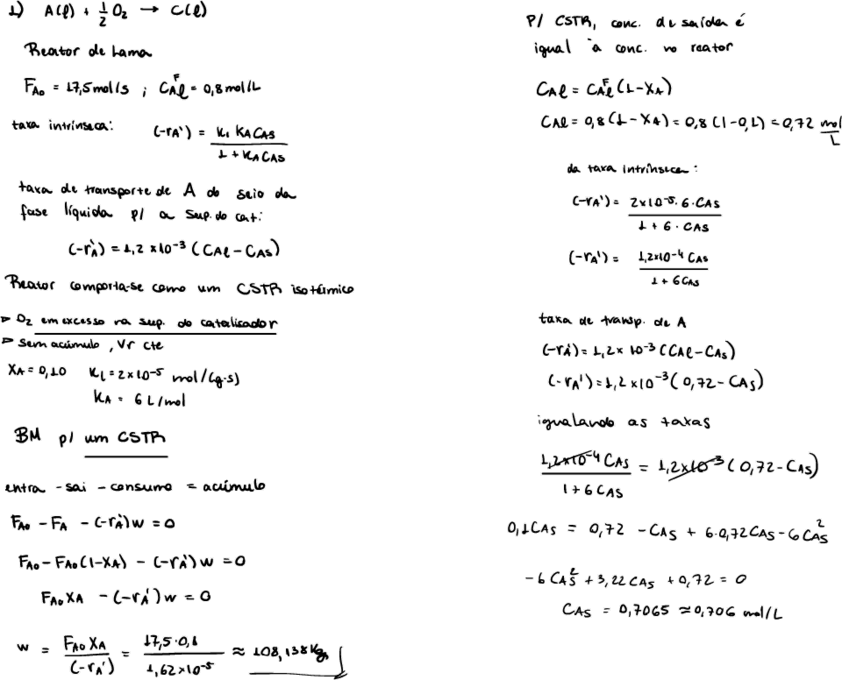 1) A(l) + 1/2 O₂ → C(l)
Reator de Lama
F_A0 = 17,5 mol/s ; C_Al^F = 0,8 mol/L
taxa intrínseca: (-rA') = K₁ K_A C_AS / (1 + K_A C_AS)
taxa de transporte de A do seio da
fase líquida p/ a sup. do cat:
(-rA') = 1,2 x10⁻³ (C_Al - C_AS)
Reator comporta-se como um CSTR isotérmico
▷ O₂ em excesso na sup. do catalisador
▷ Sem acúmulo, Vr cte
X_A = 0,10 K₁ = 2x10⁻⁵ mol/(g.s)
K_A = 6 L/mol
BM p/ um CSTR
entra - sai - consumo = acúmulo
F_A0 - F_A - (-rA')W = 0
F_A0 - F_A0(1-X_A) - (-rA')W = 0
F_A0 X_A - (-rA')W = 0
W = F_A0 X_A / (-rA') = 17,5·0,1 / 1,62x10⁻⁵ ≈ 108,138 Kg
P/ CSTR, conc. de saída é
igual à conc. no reator
C_Al = C_Al^F (1-X_A)
C_Al = 0,8 (1-X_A) = 0,8 (1-0,1) = 0,72 mol/L
da taxa intrínseca:
(-rA') = 2x10⁻⁵·6·C_AS / (1 + 6·C_AS)
(-rA') = 1,2x10⁻⁴ C_AS / (1 + 6C_AS)
taxa de transp. de A
(-rA') = 1,2x10⁻³ (C_Al - C_AS)
(-rA') = 1,2x10⁻³ (0,72 - C_AS)
igualando as taxas
1,2x10⁻⁴ C_AS / (1 + 6C_AS) = 1,2x10⁻³ (0,72 - C_AS)
0,1C_AS = 0,72 - C_AS + 6·0,72C_AS - 6C_AS²
-6C_AS² + 3,22C_AS + 0,72 = 0
C_AS = 0,7065 ≈ 0,706 mol/L